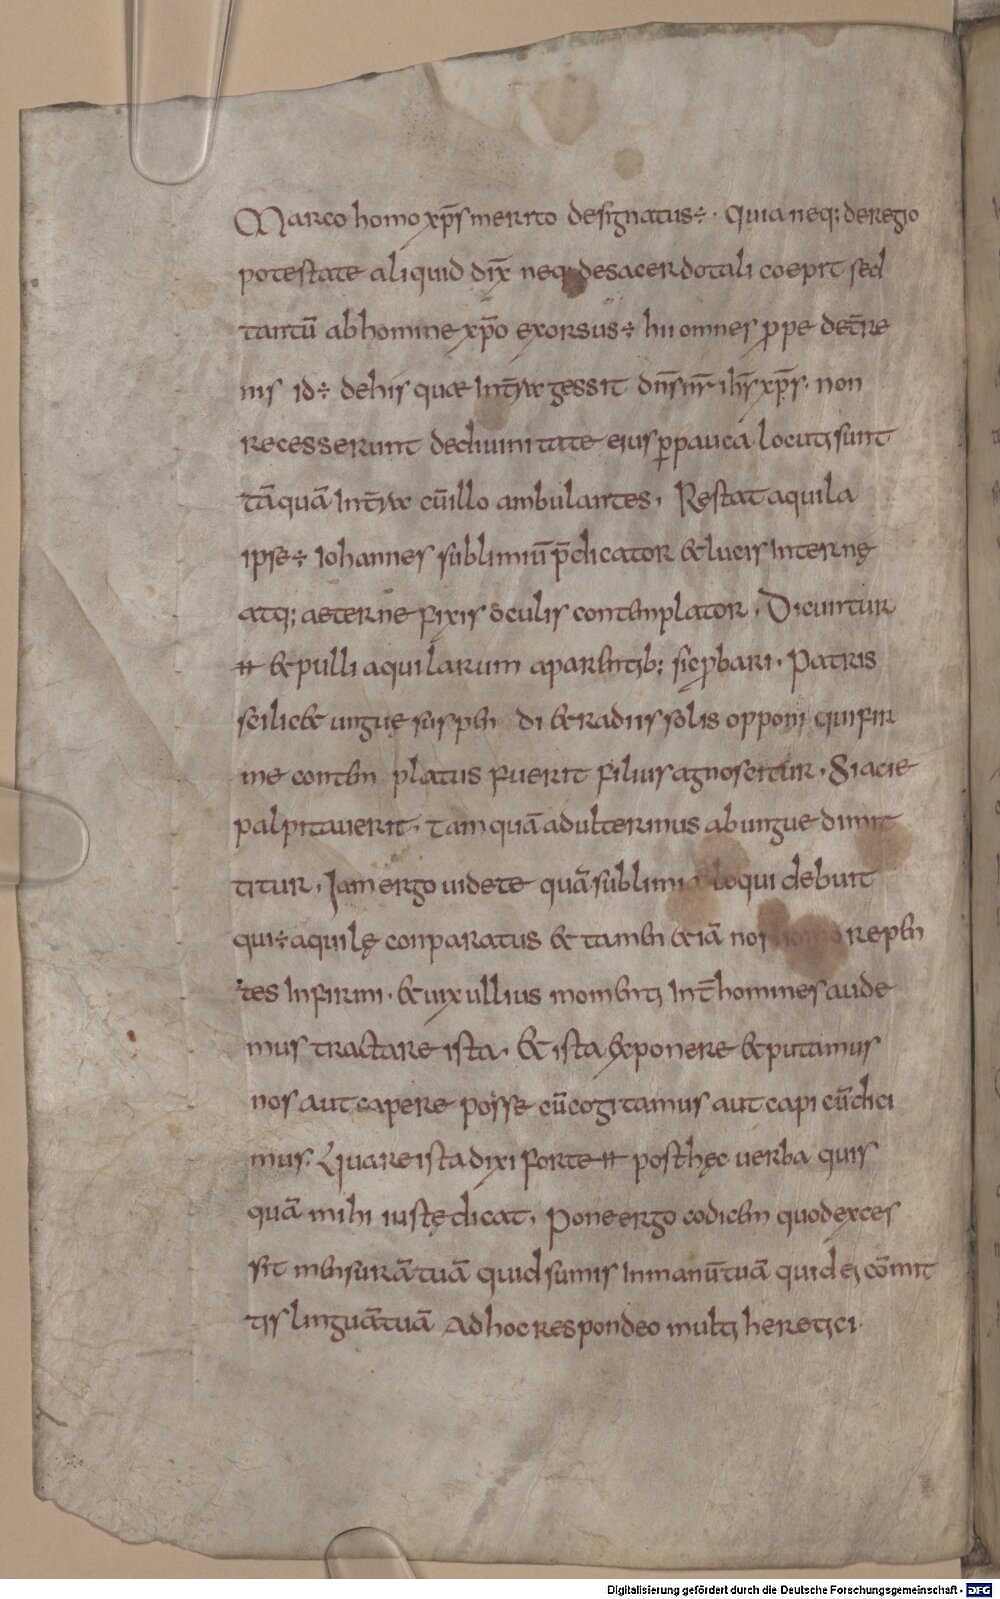 Marco homo xp̄s merito designatus ÷ · quia neq; de regio
potestate aliquid dix̄ neq; de sacerdotali coepit sed
tantū ab homine xp̄o exorsus ÷ hii omnes ꝓpe de t̄re
nis id ÷ de his quae in t̄ra gessit dn̄s nr̄ ih̄s xp̄s · non
recesserunt de divinitate eius ꝑpauca locuti sunt
tāquā in t̄ra cū illo ambulantes, Restat aquila
ipse ÷ Iohannes sublimiū p̄dicator & lucis internę
atq; aeterne fixis oculis contemplator, Dicuntur
ᚔ & pulli aquilarum a parentib; sic ꝓbari · Patris
scilic& ungue suspen di & radiis solis opponi qui fir
me contem platus fuerit filius agnoscitur · Si acie
palpitaverit, tamquā adulterinus ab ungue dimit
titur, Iam ergo videte quā sublimia loqui debuit
qui ÷ aquilę conparatus & tamen &iā nos homo repen
tes infirmi · & vix ullius momenti int̄ homines aude
mus tractare ista · & ista exponere & putamus
nos aut capere posse cū cogitamus aut capi cū dici
mus. Quare ista dixi forte ᚔ post hęc verba quis
quā mihi iustę dicat, Pone ergo codicem quod exces
sit mensurā tuā quid sumis in manū tuā quid ei cōmit
tis linguā tuā Ad hoc respondeo multi heretici
Digitalisierung gefördert durch die Deutsche Forschungsgemeinschaft - DFG